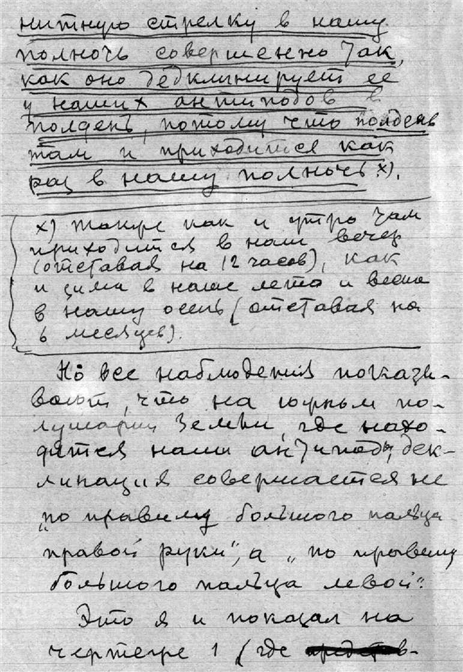 нитную стрелку в нашу
полночь совершенно так,
как оно деклинирует ее
у наших антиподов в
полдень, потому что полдень
там и приходится как
раз в нашу полночь х).
х) Также как и утро там
приходится в наш вечер
(отставая на 12 часов), как
и зима в наше лето и весна
в нашу осень (отставая на
6 месяцев).
Но все наблюдения показы-
вают, что на южном по-
лушарии Земли, где нахо-
дятся наши антиподы, дек-
линация совершается не
„по правилу большого пальца
правой руки", а „по правилу
большого пальца левой".
Это я и показал на
чертеже 1 (где